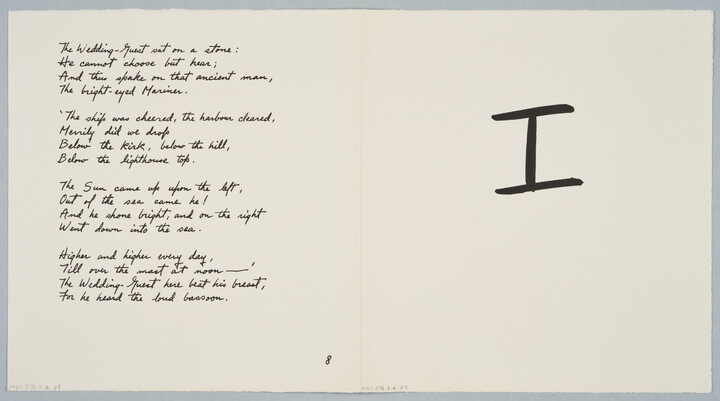 The Wedding-Guest sat on a stone:
He cannot choose but hear;
And thus spake on that ancient man,
The bright-eyed Mariner.
'The ship was cheered, the harbour cleared,
Merrily did we drop
Below the Kirk, below the hill,
Below the lighthouse top.
The Sun came up upon the left,
Out of the sea came he!
And he shone bright, and on the right
Went down into the sea.
Higher and higher every day,
Till over the mast at noon—'
The Wedding-Guest here beat his breast,
For he heard the loud bassoon.
8
I